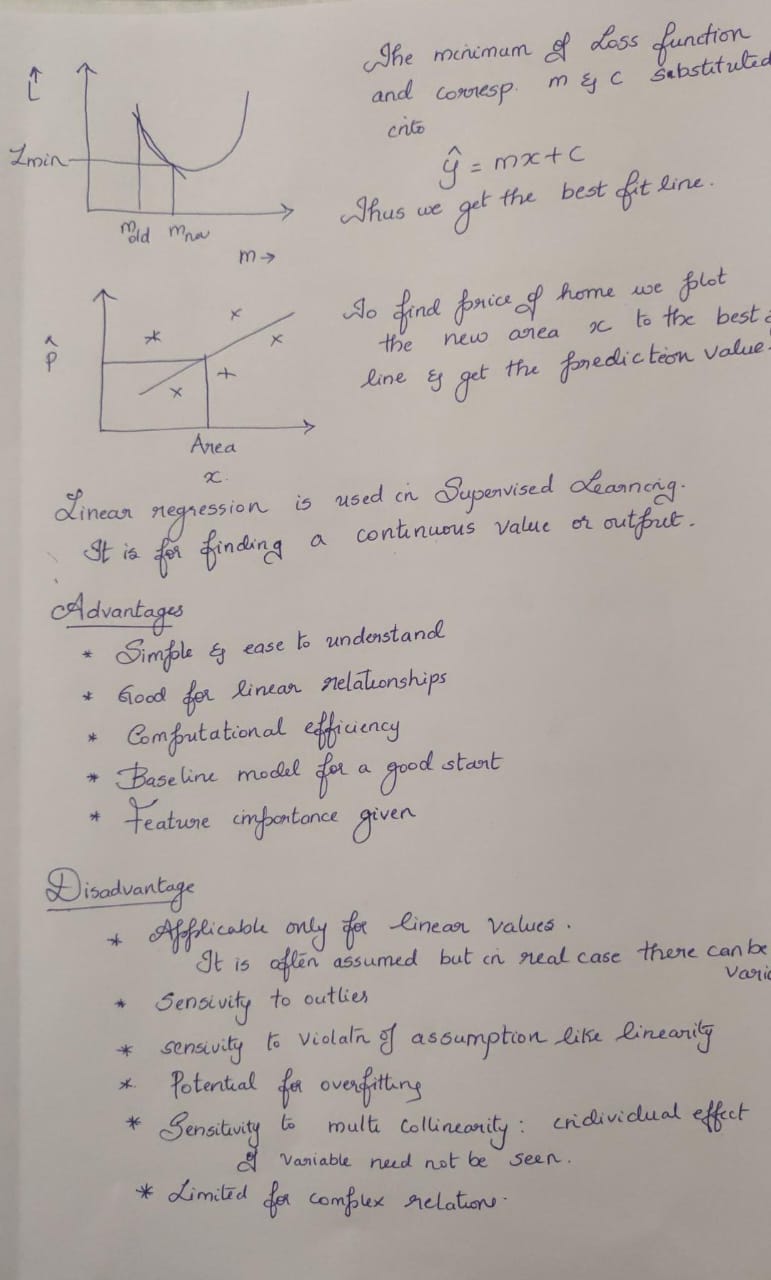 The minimum of Loss function
and corresp. m & c substituted
into
ŷ = mx+c
Thus we get the best fit line.
L
Lmin
mold mnew
m →
To find price of home we plot
the new area x to the best
line & get the prediction value.
p̂
Area
x
Linear regression is used in Supervised Learning.
It is for finding a continuous value or output.
Advantages
* Simple & ease to understand
* Good for linear relationships
* Computational efficiency
* Baseline model for a good start
* Feature importance given
Disadvantage
* Applicable only for linear values.
It is often assumed but in real case there can be
varia
* Sensivity to outlies
* sensivity to violatn of assumption like linearity
* Potential for overfitting
* Sensitivity to multi collinearity: individual effect
of variable need not be seen.
* Limited for complex relations.